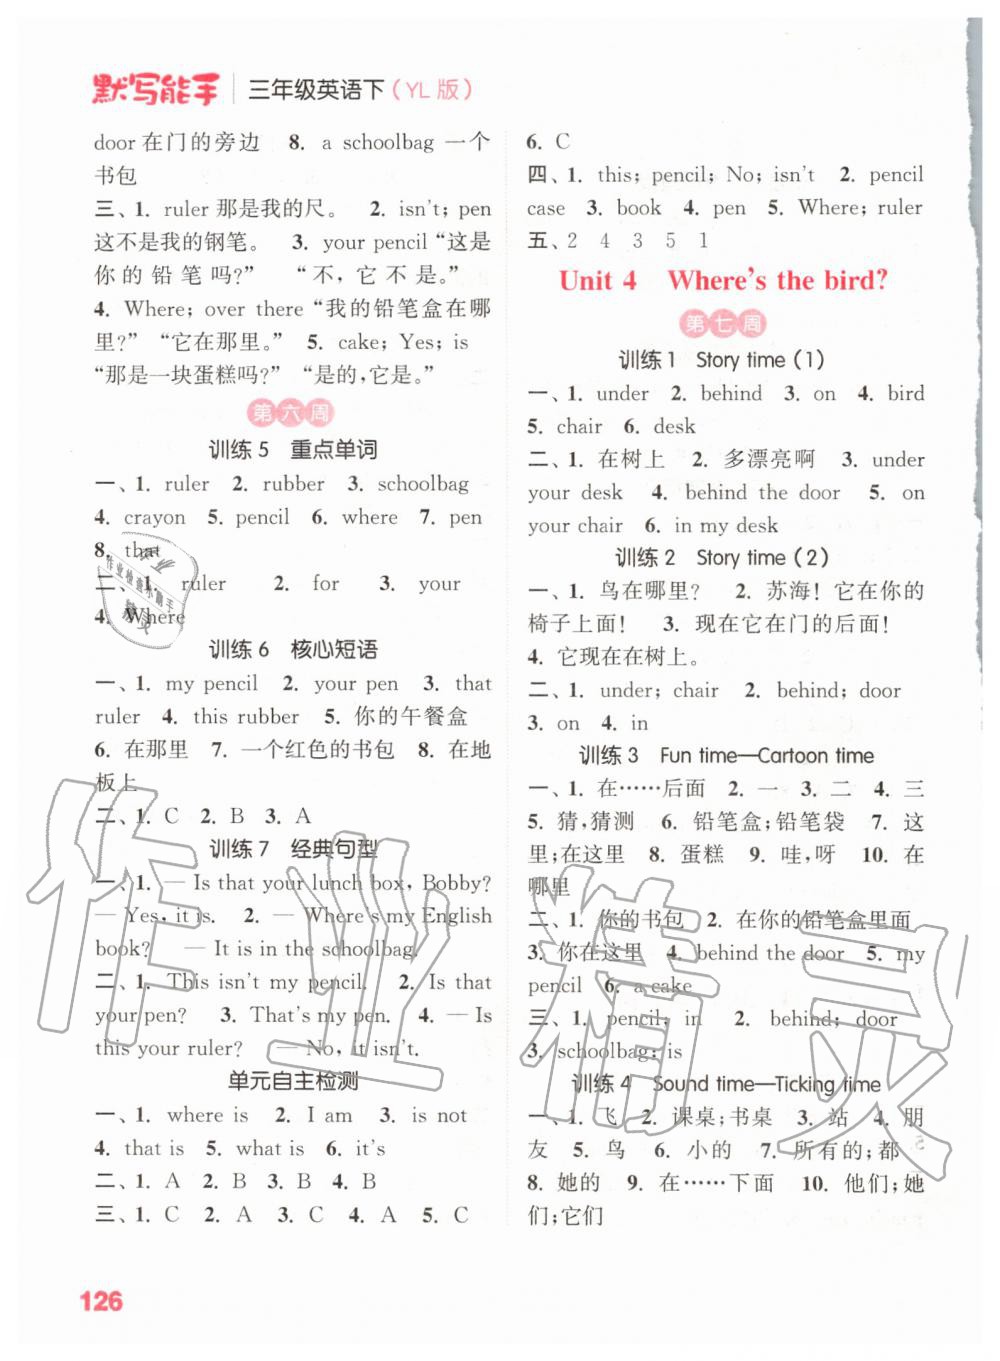 默写能手 三年级英语下（YL 版）
door 在门的旁边 8. a schoolbag 一个
书包
三、1. ruler 那是我的尺。 2. isn't；pen
这不是我的钢笔。 3. your pencil “这是
你的铅笔吗?” “不，它不是。”
4. Where；over there “我的铅笔盒在哪
里?” “它在那里。” 5. cake；Yes；is
“那是一块蛋糕吗?” “是的,它是。”
第六周
训练 5 重点单词
一、1. ruler 2. rubber 3. schoolbag
4. crayon 5. pencil 6. where 7. pen
8. that
二、1. ruler 2. for 3. your
4. Where
训练 6 核心短语
一、1. my pencil 2. your pen 3. that
ruler 4. this rubber 5. 你的午餐盒
6. 在那里 7. 一个红色的书包 8. 在地
板上
二、1. C 2. B 3. A
训练 7 经典句型
一、1. — Is that your lunch box, Bobby?
— Yes, it is. 2. — Where's my English
book? — It is in the schoolbag.
二、1. This isn't my pencil. 2. Is that
your pen? 3. That's my pen. 4. — Is
this your ruler? — No, it isn't.
单元自主检测
一、1. where is 2. I am 3. is not
4. that is 5. what is 6. it's
二、1. A 2. B 3. A 4. B
三、1. C 2. A 3. C 4. A 5. C
6. C
四、1. this；pencil；No；isn't 2. pencil
case 3. book 4. pen 5. Where；ruler
五、2 4 3 5 1
Unit 4 Where's the bird?
第七周
训练 1 Story time (1)
一、1. under 2. behind 3. on 4. bird
5. chair 6. desk
二、1. 在树上 2. 多漂亮啊 3. under
your desk 4. behind the door 5. on
your chair 6. in my desk
训练 2 Story time (2)
一、1. 鸟在哪里? 2. 苏海！它在你的
椅子上面！ 3. 现在它在门的后面！
4. 它现在在树上。
二、1. under；chair 2. behind；door
3. on 4. in
训练 3 Fun time—Cartoon time
一、1. 在……后面 2. 一 3. 二 4. 三
5. 猜,猜测 6. 铅笔盒;铅笔袋 7. 这
里;在这里 8. 蛋糕 9. 哇,呀 10. 在
哪里
二、1. 你的书包 2. 在你的铅笔盒里面
3. 你在这里 4. behind the door 5. my
pencil 6. a cake
三、1. pencil；in 2. behind；door
3. schoolbag；is
训练 4 Sound time—Ticking time
一、1. 飞 2. 课桌;书桌 3. 站 4. 朋
友 5. 鸟 6. 小的 7. 所有的;都
8. 她的 9. 在……下面 10. 他们;她
们;它们
126
作业精灵